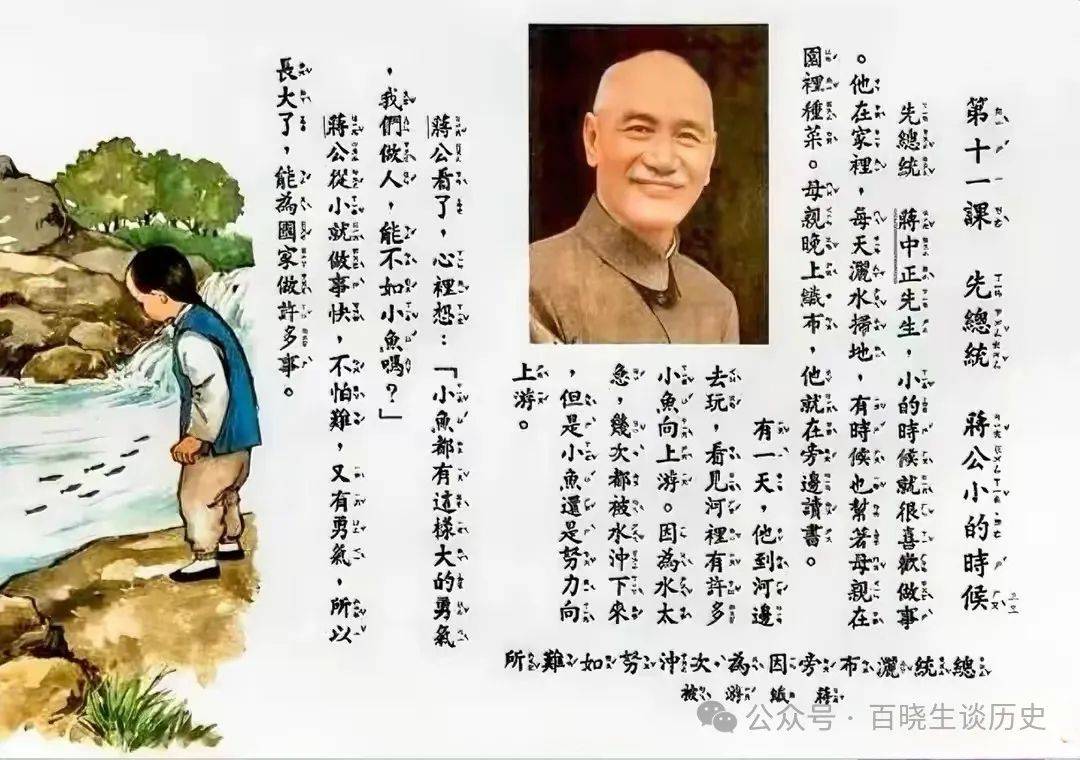 第十一課　先總統　蔣公小的時候
先總統　蔣中正先生，小的時候就很喜歡做事
。他在家裡，每天灑水掃地，有時候也幫著母親在
園裡種菜。母親晚上織布，他就在旁邊讀書。
有一天，他到河邊
去玩，看見河裡有許多
小魚向上游。因為水太
急，幾次都被水沖下來
，但是小魚還是努力向
上游。
蔣公看了，心裡想：「小魚都有這樣大的勇氣
，我們做人，能不如小魚嗎？」
蔣公從小就做事快，不怕難，又有勇氣，所以
長大了，能為國家做許多事。
總統灑布旁因為次沖努如難所
蔣織游被
公众号 · 百晓生谈历史